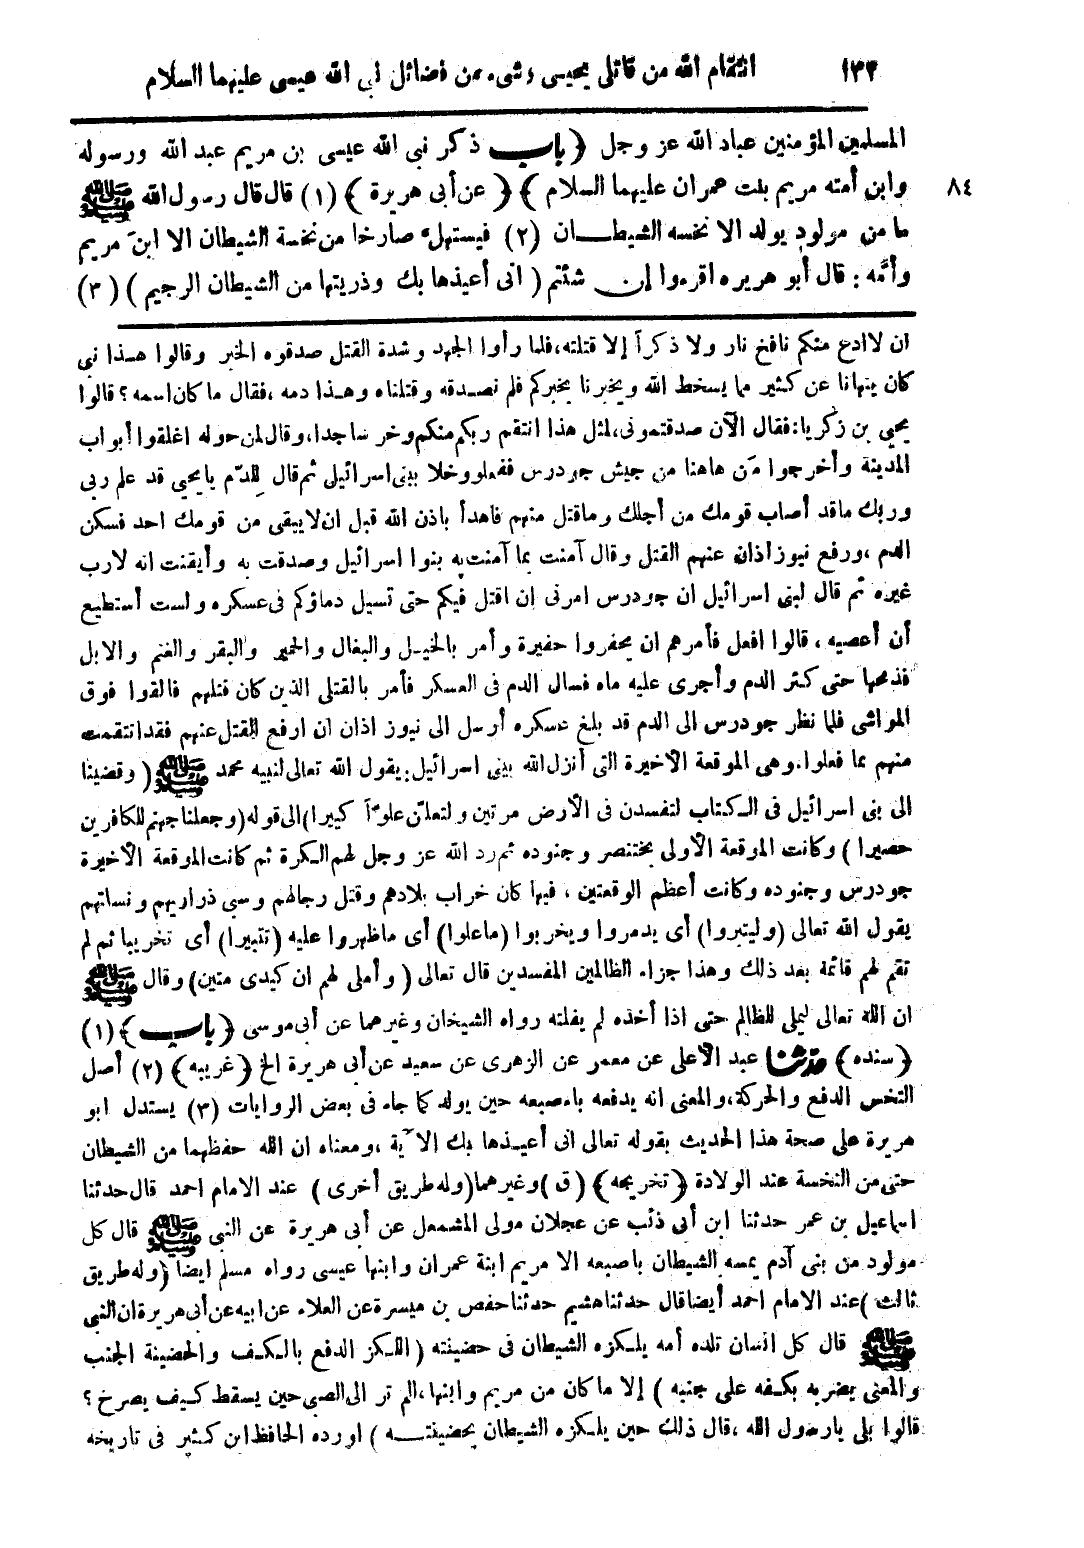 ١٣٣ انتقام الله من قاتلى يحيى وشىء من فضائل نبى الله عيسى عليهما السلام
المسلمين المؤمنين عباد الله عز وجل ﴿ باب ذكر نبى الله عيسى بن مريم عبد الله ورسوله
٨٤ وابن أمته مريم بنت عمران عليهما السلام ﴾ ﴿ عن أبى هريرة ﴾ (١) قال قال رسول الله ﷺ
ما من مولود يولد الا نخسه الشيطــان (٢) فيستهل صارخا من نخسة الشيطان الا ابن مريم
وأمه : قال أبو هريره اقرءوا إن شئتم ( انى أعيذها بك وذريتها من الشيطان الرجيم ) (٣)
ان لا ادع منكم نافخ نار ولا ذكرا إلا قتلته، فلما رأوا الجهد وشدة القتل صدقوه الخبر وقالوا هـذا نبى
كان ينهانا عن كثير مما يسخط الله ويخبرنا بخبركم فلم نصـدقه وقتلناه وهـذا دمه ، فقال ما كان اسمه ؟ قالوا
يحيى بن زكريا : فقال الآن صدقتمونى، لمثل هذا انتقم ربكم منكم وخر ساجدا، وقال لمن حوله اغلقوا أبواب
المدينة وأخرجوا من هاهنا من جيش جودرس ففعلوو خلا ببنى اسرائيل ثم قال للدم يا يحيى قد علم ربى
وربك ماقد أصاب قومك من أجلك وماقتل منهم فاهدأ باذن الله قبل ان لا يبقى من قومك احد فسكن
الدم ، ورفع نيوزاذان عنهم القتل وقال آمنت بما آمنت به بنوا اسرائيل وصدقت به وأيقنت انه لارب
غيره ثم قال لبنى اسرائيل ان جودرس امرنى ان اقتل فيكم حتى تسيل دماؤكم فى عسكره ولست أستطيع
أن أعصيه ، قالوا افعل فأمرهم ان يحفروا حفيرة وأمر بالخيـل والبغال والحمير والبقر والغنم والابل
فذبحها حتى كثر الدم وأجرى عليه ماء فسال الدم فى العسكر فأمر بالقتلى الذين كان قتلهم فالقوا فوق
المواشى فلما نظر جودرس الى الدم قد بلغ عسكره أرسل الى نيوز اذان ان ارفع القتل عنهم فقد انتقمت
منهم بما فعلوا. وهى الموقعة الأخيرة التى أنزل الله ببنى اسرائيل: يقول الله تعالى لنبيه محمد ﷺ ( وقضينا
الى بنى اسرائيل فى الـكتاب لتفسدن فى الأرض مرتين ولتعلن علوّاً كبيرا) الى قوله (وجعلنا جهنم للكافرين
حصيرا ) وكانت الموقعة الأولى بختنصر وجنوده ثم رد الله عز وجل لهم الـكرة ثم كانت الموقعة الأخيرة
جودرس وجنوده وكانت أعظم الوقعتين ، فيها كان خراب بلادهم وقتل رجالهم وسبى ذراريهم ونسائهم
يقول الله تعالى (وليتبروا) أى يدمروا ويخربوا (ماعلوا) أى ماظهروا عليه (تتبيرا) أى تخريبا ثم لم
تقم لهم قائمة بعد ذلك وهذا جزاء الظالمين المفسدين قال تعالى ( وأملى لهم ان كيدى متين) وقال ﷺ
ان الله تعالى ليملى للظالم حتى اذا أخذه لم يفلته رواه الشيخان وغيرهما عن أبى موسى ﴿ باب ﴾ (١)
﴿ سنده ﴾ حدثنا عبد الأعلى عن معمر عن الزهرى عن سعيد عن أبى هريرة الخ ﴿ غريبه ﴾ (٢) أصل
النخس الدفع والحركة، والمعنى انه يدفعه باءصبعه حين يولد كما جاء فى بعض الروايات (٣) يستدل ابو
هريرة على صحة هذا الحديث بقوله تعالى انى أعيـذها بك الآية ، ومعناه ان الله حفظهما من الشيطان
حتى من النخسة عند الولادة ﴿ تخريجه ﴾ (ق) وغيرهما (وله طريق أخرى ) عند الامام احمد قال حدثنا
اسماعيل بن عمر حدثنا ابن أبى ذئب عن عجلان مولى المشمعل عن أبى هريرة عن النبى ﷺ قال كل
مولود من بنى آدم يمسه الشيطان باصبعه الا مريم ابنة عمران وابنها عيسى رواه مسلم ايضا (وله طريق
ثالث ) عند الامام احمد أيضا قال حدثنا هشيم حدثنا حفص بن ميسرة عن العلاء عن ابيه عن أبى هريرة ان النبى
ﷺ قال كل انسان تلده أمه يلـكزه الشيطان فى حضينته ( اللـكز الدفع بالـكـف والحضينة الجنب
والمعنى يضربه بكفه على جنبه ) إلا ما كان من مريم وابنها، ألم تر الى الصبى حين يسقط كـيف يصرخ ؟
قالوا بلى يارسول الله ، قال ذلك حين يلـكزه الشيطان بحضينتـــه ) اورده الحافظ ابن كـثير فى تاريخه